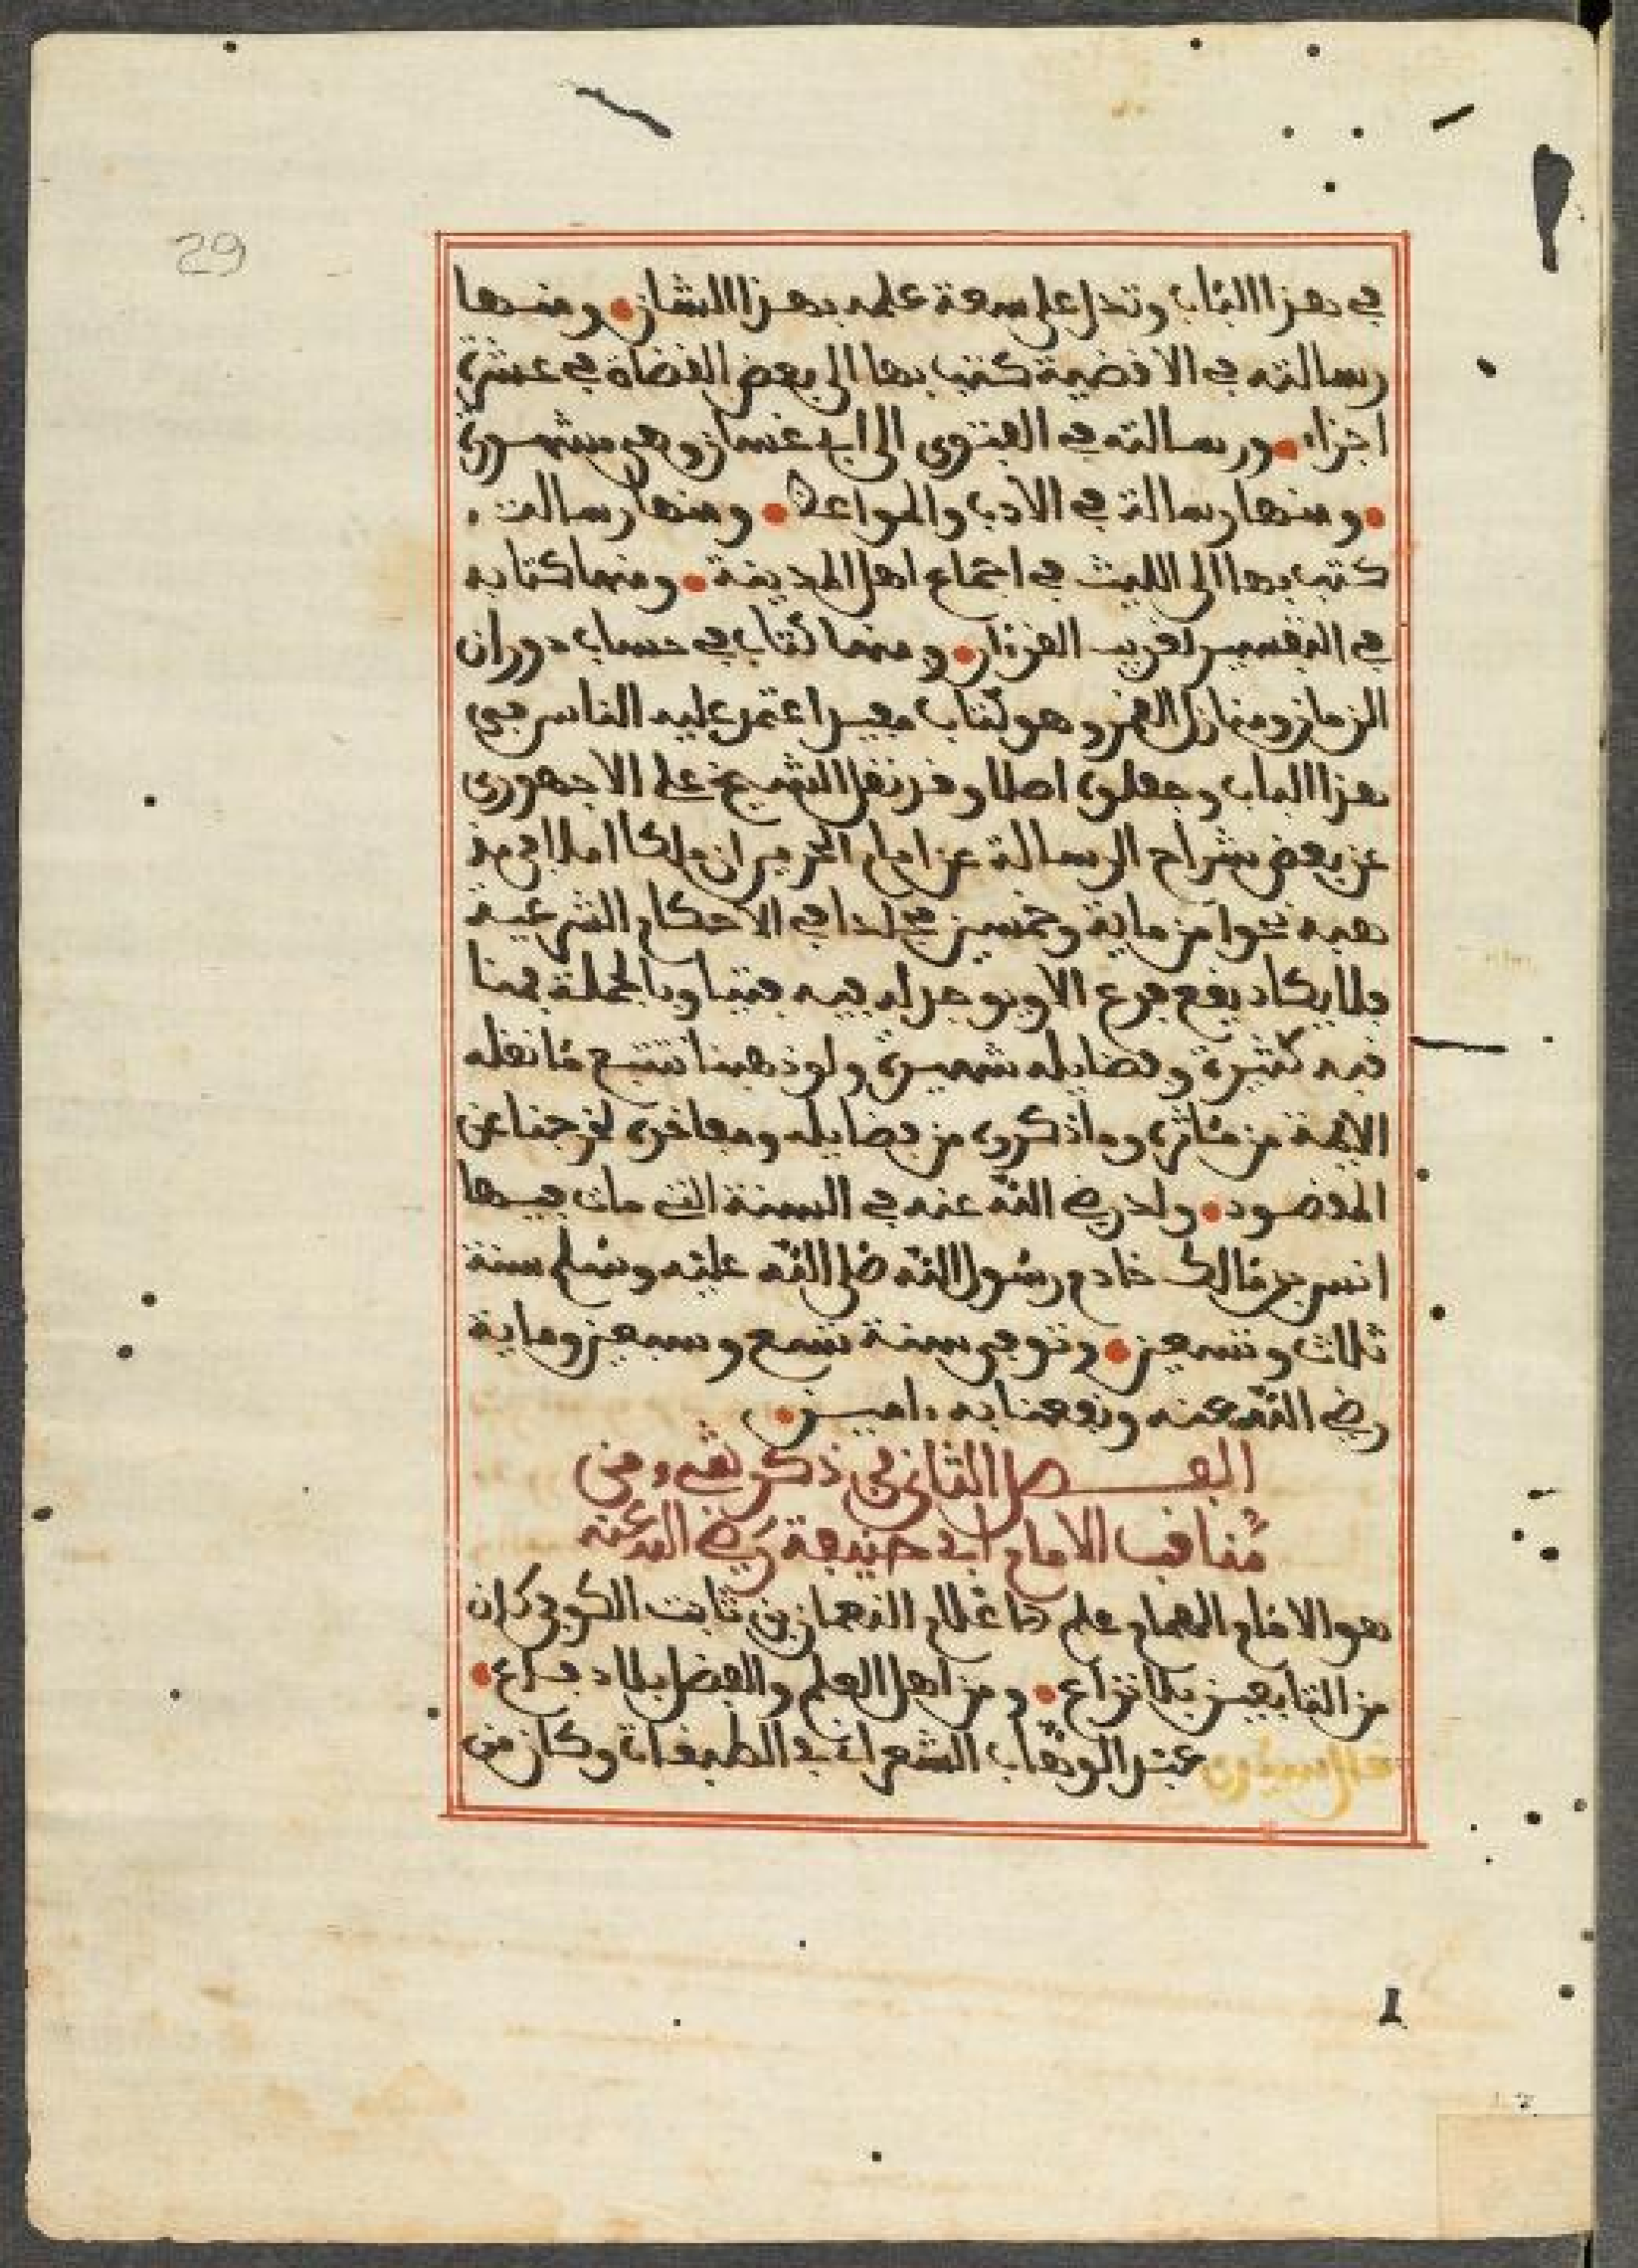 29
في هذا الباب وتدل على سعة علمه بهذا الشان ومنها
رسالته في الاقضية كتب بها الى بعض القضاة في عشرة
اجزاء ورسالته في الفتوى الى ابي غسان وهي مشهورة
ومنها رسالة في الادب والمواعظ ومنها رسالته
كتب بها الى الليث في اجماع اهل المدينة ومنها كتابه
في التفسير لغريب القرءان ومنها كتاب في حساب دوران
الزمان ومنازل القمر وهو كتاب مفيد اعتمد عليه الناس في
هذا الباب وجعلوه اصلا وقد نقل الشيخ علي الاجهوري
عن بعض شراح الرسالة عن امام الحرمين ان ملكا املا في مذ
هبه نحوا من ماية وخمسين مجلدا في الاحكام الشرعية
فلا يكاد يقع فرع الا ويوجد له فيه فتيا وبالجملة فمنا
قبه كثيرة وفضايله شهيرة ولو ذهبنا نتتبع ما نقله
الايمة من مئاثره وما ذكروه من فضايله ومفاخره لخرجنا عن
المقصود ولد رضي الله عنه في السنة التي مات فيها
انس بن مالك خادم رسول الله صلى الله عليه وسلم سنة
ثلاث وتسعين وتوفي سنة تسع وسبعين وماية
رضي الله عنه ونفعنا به ءامين
الفصل الثاني في ذكر شيء من
مناقب الامام ابي حنيفة رضي الله عنه
هو الامام الهمام علم الاعلام النعمان بن ثابت الكوفي كان
من التابعين بلا نزاع ومن اهل العلم والفضل بلا دفاع
قال سيدي عبد الوهاب الشعراني في الطبقات وكان من
1